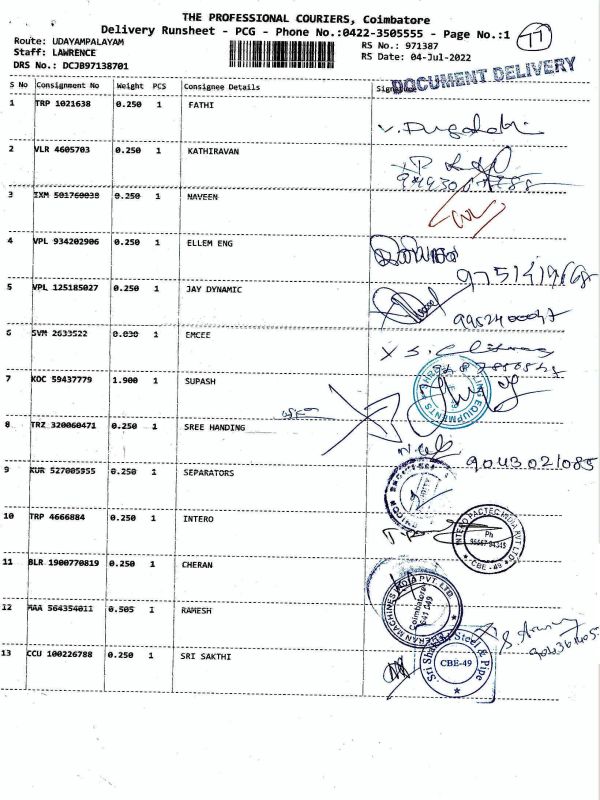 THE PROFESSIONAL COURIERS, Coimbatore
Delivery Runsheet - PCG - Phone No.:0422-3505555 - Page No.:1
77
Route: UDAYAMPALAYAM
RS No.: 971387
Staff: LAWRENCE
RS Date: 04-Jul-2022
DRS No.: DCJB97138701
DOCUMENT DELIVERY
S No Consignment No Weight PCS Consignee Details
1 TRP 1021638 0.250 1 FATHI
2 VLR 4605703 0.250 1 KATHIRAVAN
3 IXM 501760038 0.250 1 NAVEEN
4 VPL 934202906 0.250 1 ELLEM ENG
5 VPL 125185027 0.250 1 JAY DYNAMIC
9952400047
6 SVM 2633522 0.030 1 EMCEE
7 KOC 59437779 1.900 1 SUPASH
8 TRZ 320060471 0.250 1 SREE HANDING
9043021085
9 KUR 527005955 0.250 1 SEPARATORS
10 TRP 4666884 0.250 1 INTERO
INTERO PACTEC INDIA PVT LTD
Ph
CBE-49
11 BLR 1900770819 0.250 1 CHERAN
CHERAN MACHINES INDIA PVT. LTD.
Coimbatore
641 049
12 MAA 564354011 0.505 1 RAMESH
13 CCU 100226788 0.250 1 SRI SAKTHI
Sri Shakthi Steel & Pipe
CBE-49